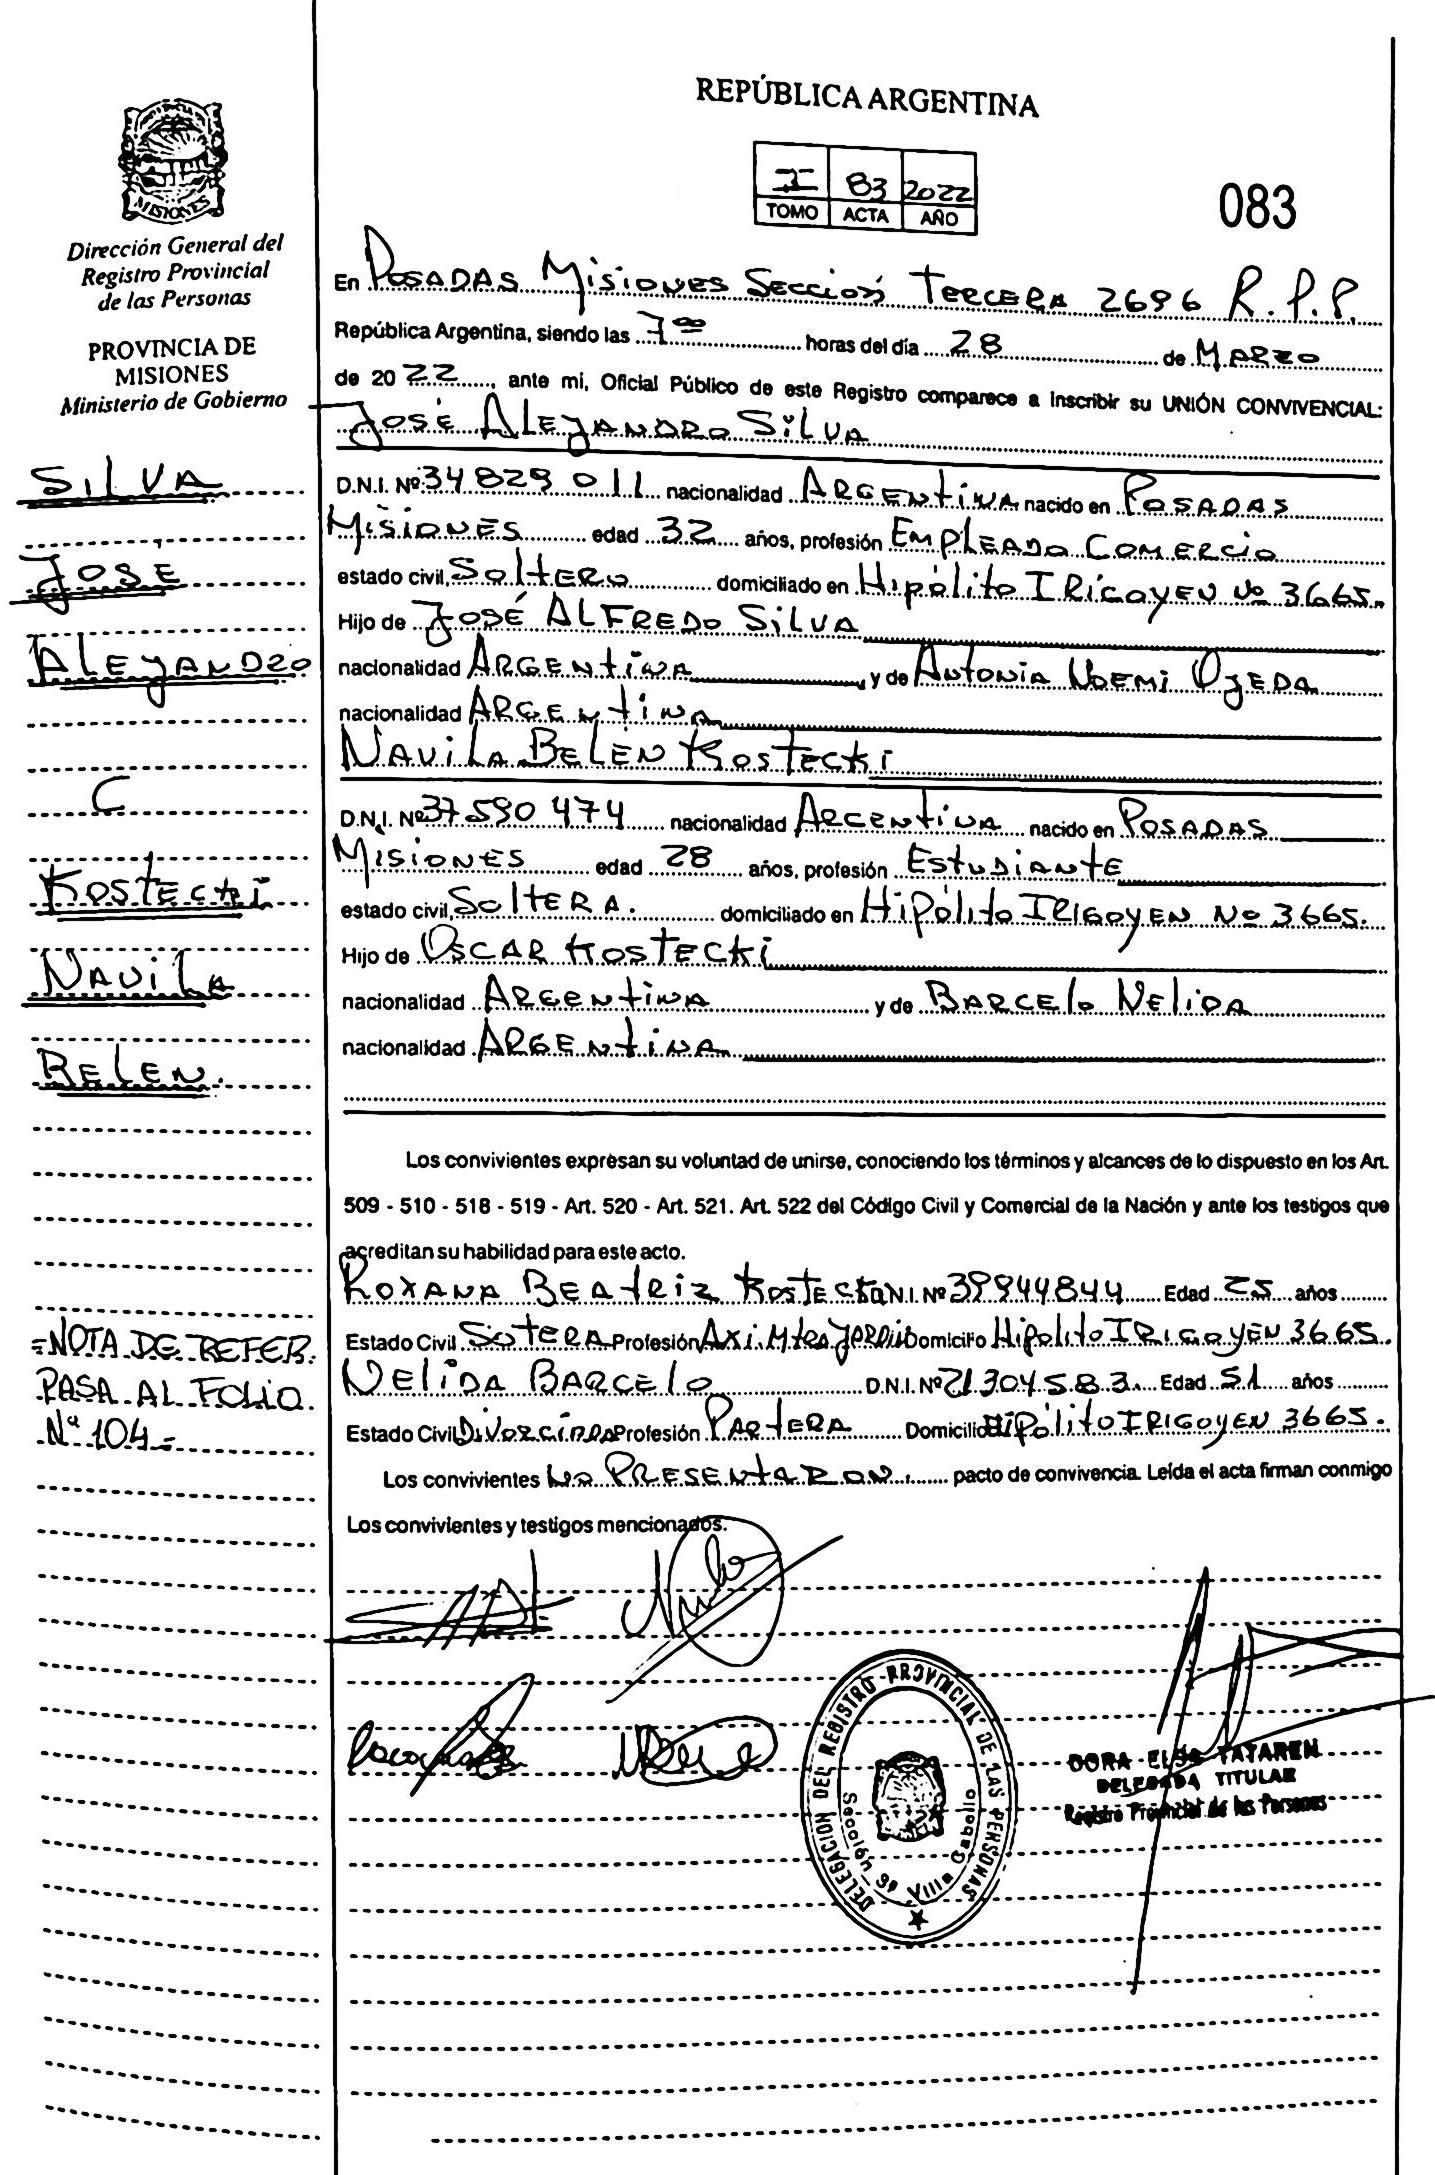 REPÚBLICA ARGENTINA
I 83 2022
TOMO ACTA AÑO
083
MISIONES
Dirección General del
Registro Provincial
de las Personas
PROVINCIA DE
MISIONES
Ministerio de Gobierno
SILVA
JOSE
ALEJANDRO
C
KOSTECKI
NAVILA
BELEN.
=NOTA DE REFER.
PASA AL FOLIO
Nº 104=
En POSADAS MISIONES SECCIÓN TERCERA 2696 R.P.P.
República Argentina, siendo las 7 00 horas del día 28 de MARZO
de 20 22, ante mi, Oficial Público de este Registro comparece a inscribir su UNIÓN CONVIVENCIAL:
JOSÉ ALEJANDRO SILVA
D.N.I. Nº 34 829 011 nacionalidad ARGENTINA nacido en POSADAS
MISIONES edad 32 años, profesión EMPLEADO COMERCIO
estado civil SOLTERO domiciliado en HIPÓLITO IRIGOYEN Nº 3665.
Hijo de JOSÉ ALFREDO SILVA
nacionalidad ARGENTINA y de ANTONIA NOEMI OJEDA
nacionalidad ARGENTINA
NAVILA BELÉN KOSTECKI
D.N.I. Nº 37 590 474 nacionalidad ARGENTINA nacido en POSADAS
MISIONES edad 28 años, profesión ESTUDIANTE
estado civil SOLTERA. domiciliado en HIPÓLITO IRIGOYEN Nº 3665.
Hijo de OSCAR KOSTECKI
nacionalidad ARGENTINA y de BARCELO NELIDA
nacionalidad ARGENTINA
Los convivientes expresan su voluntad de unirse, conociendo los términos y alcances de lo dispuesto en los Art.
509 - 510 - 518 - 519 - Art. 520 - Art. 521. Art. 522 del Código Civil y Comercial de la Nación y ante los testigos que
acreditan su habilidad para este acto.
ROXANA BEATRIZ KOSTECKI D.N.I. Nº 39944844 Edad 25 años
Estado Civil SOLTERA Profesión Domicilio HIPOLITO IRIGOYEN 3665.
NELIDA BARCELO D.N.I. Nº 21304583. Edad 51 años
Estado Civil DIVORCIADA Profesión PARTERA Domicilio HIPÓLITO IRIGOYEN 3665.
Los convivientes NO PRESENTARON. pacto de convivencia. Leída el acta firman conmigo
Los convivientes y testigos mencionados.
DELEGACION DEL REGISTRO PROVINCIAL DE LAS PERSONAS
Sección 3ª Villa Cabello
DORA ELSA TATAREN
DELEGADA TITULAR
Registro Provincial de las Personas